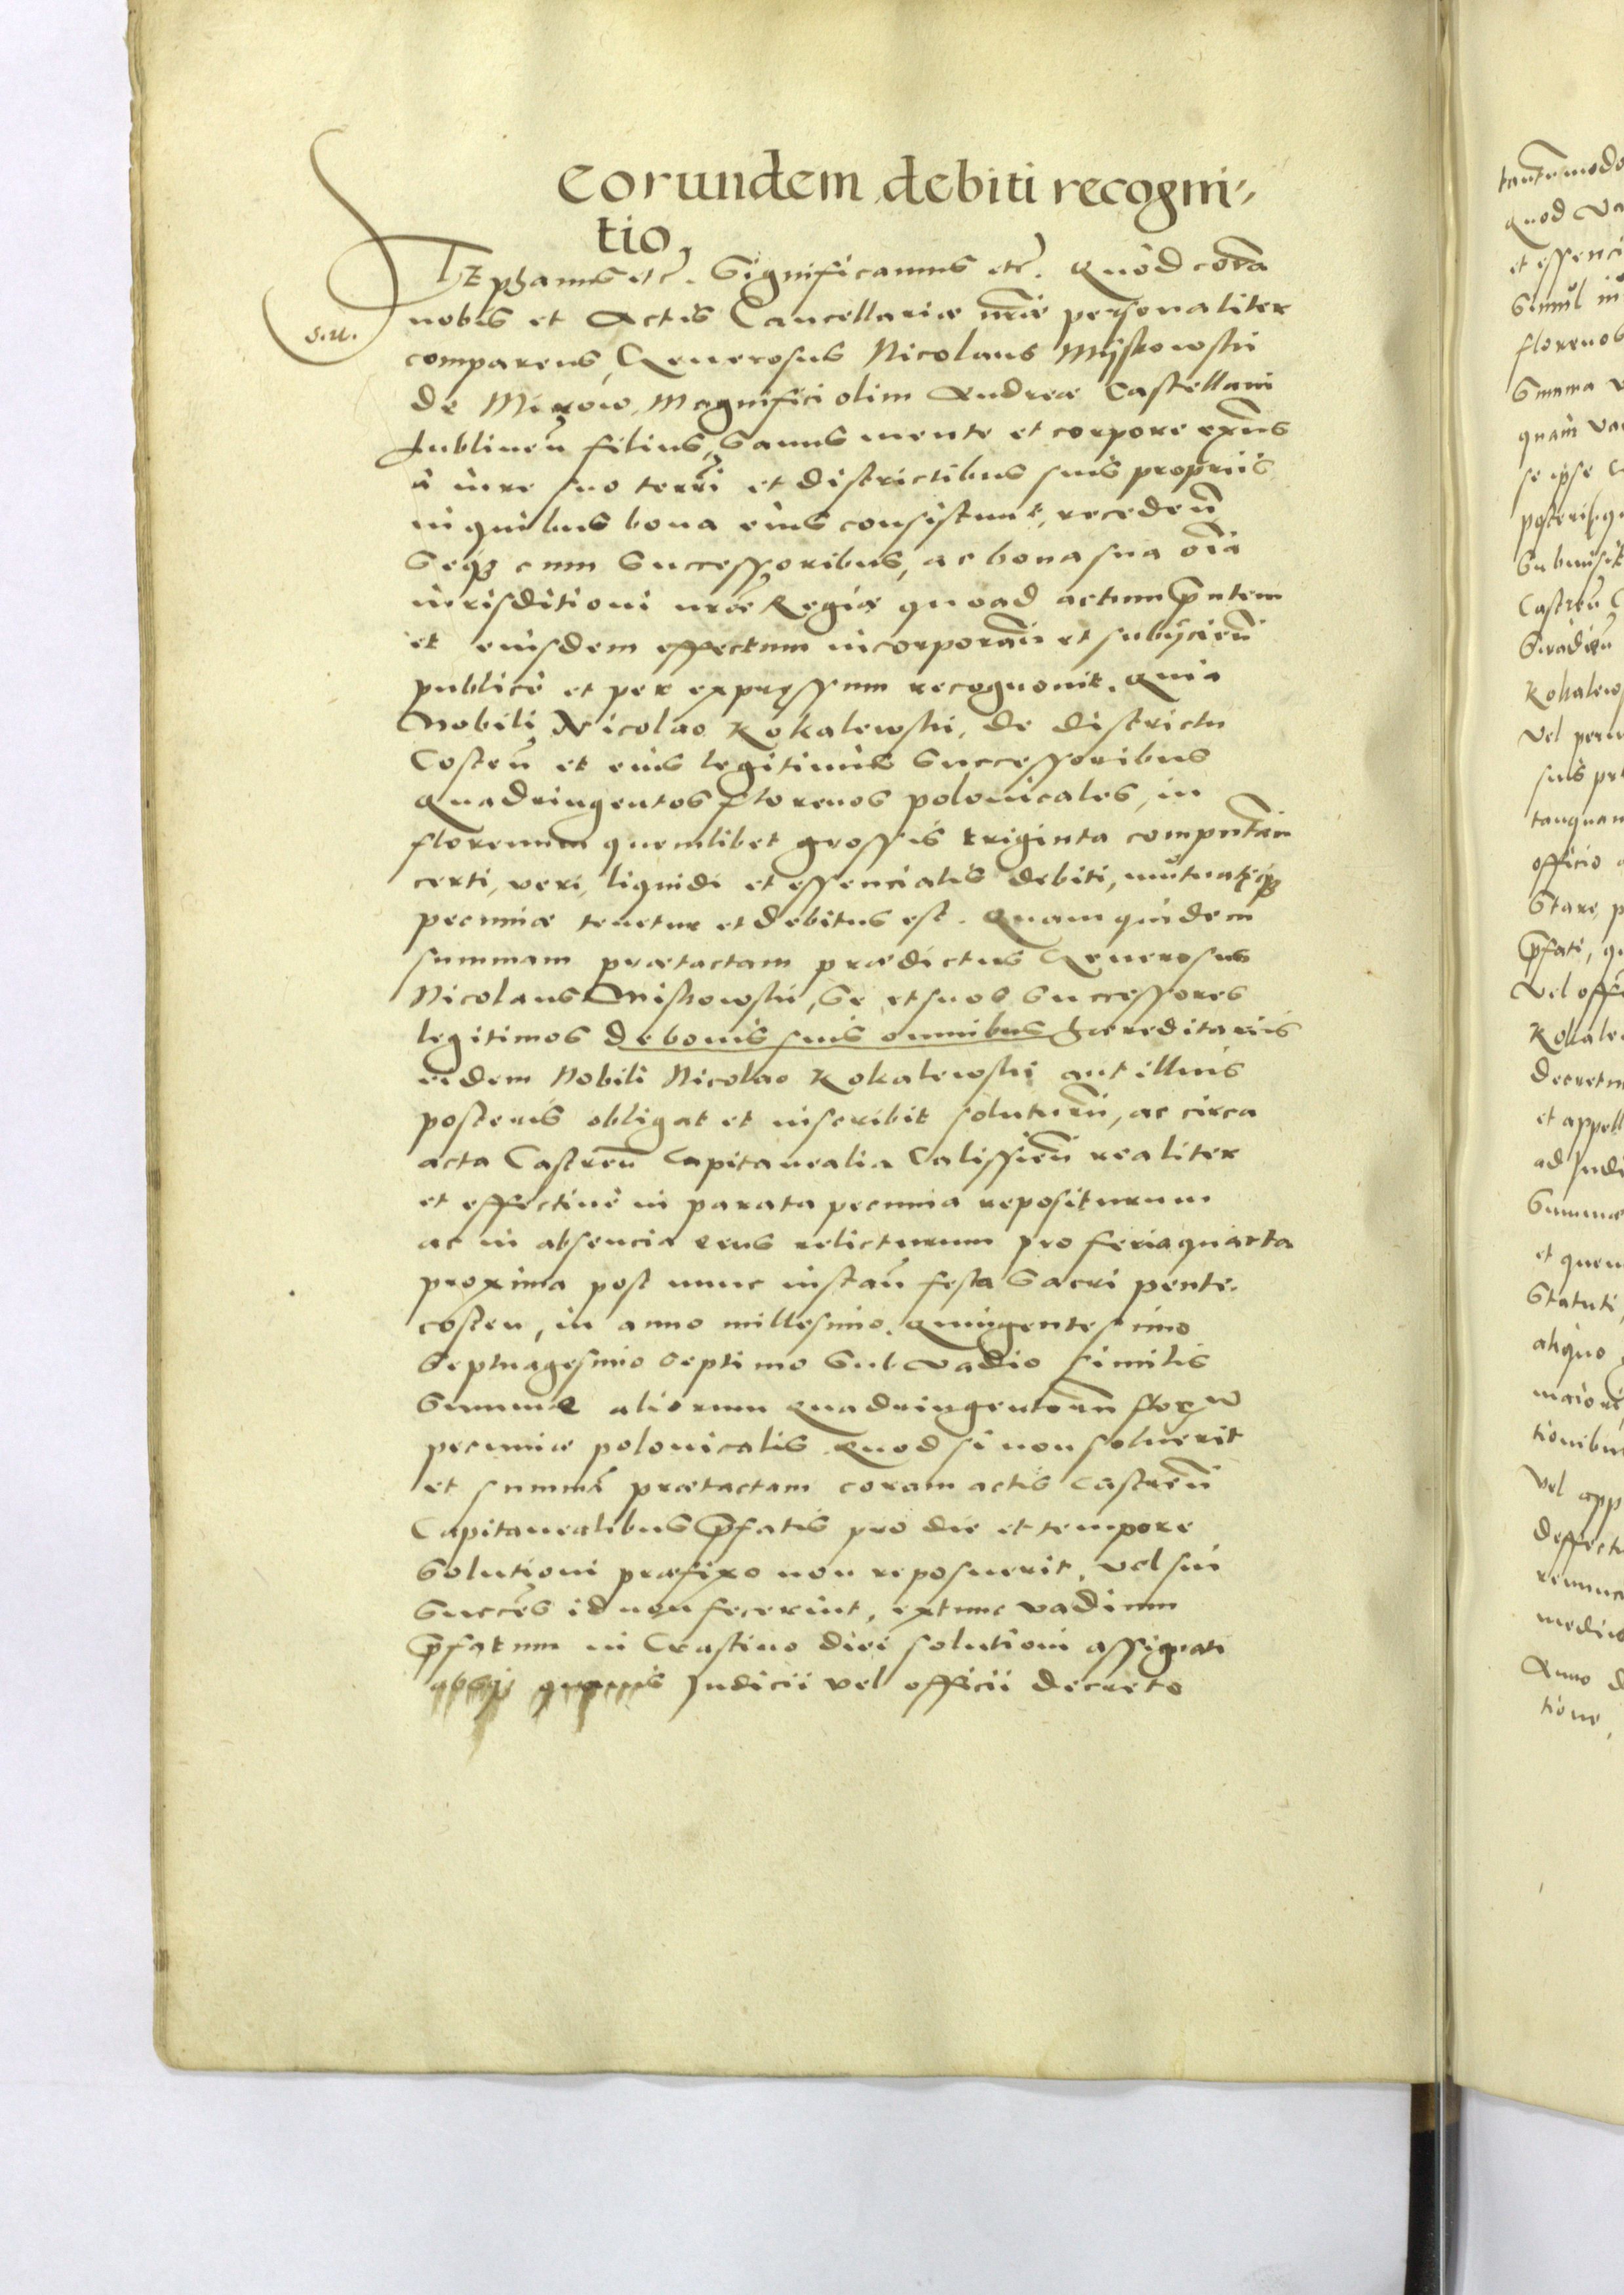 eorundem debiti recogni-
tio,
STEphanus etc. Significamus etc. Quòd corã
s.u.
nobis et Actis Cancellariæ nr̃æ personaliter
comparens, Generosus Nicolaus Mÿskowski
de Mirow, Magnifici olim Andreæ Castellani
Lublineñ filius, sanus mente et corpore exñs
à iure suo terrĩ et districtibus suis proprijs
in quibus bona eius consistunt, recedeñ
seqꝫ cum successoribus, ac bona sua oĩa
iurisditioni nr̃æ Regiæ quoad actum p̃ntem
et eiusdem effectum incorporañ et subÿcieñ
publicè et per expressum recognouit. Quia
Nobili Nicolao Kokalewski, de districtu
Costeñ et eius legitimis successoribus
Quadringentos florenos polonicales, in
florenum quemlibet grossis triginta computãn
certi, veri, liquidi et essencialis debiti, mutuatæqꝫ
pecuniæ tenetur et debitus est. Quam quidem
summam prætactam prædictus Generosus
Nicolaus Miskowski, se et suos successores
legitimos de bonis suis omnibus hæreditariis
eidem Nobili Nicolao Kokalewski aut illius
posteris obligat et inscribit soluturũ, ac circa
acta Castreñ Capitanealia Calissieñ realiter
et effectiuè in parata pecunia repositurum
ac in absencia eius relicturum pro feria quarta
proxima post nunc instañ festa Sacri pente-
costen, in anno millesimo. Quingentesimo
septuagesimo septimo sub vadio similis
summæ aliorum quadringentorũ flor.
pecuniæ polonicalis. Quod si non soluerit
et summã prætactam coram actis castreñ
Capitanealibus p̃fatis pro die et tempore
solutioni præfixo non reposuerit, vel sui
succẽs id non fecerint, extunc vadium
p̃fatum in Crastino diei solutioni assignati
absqꝫ quouis Judicii vel officii decreto
tantũmodo
quod va
et essenci
simul in
florenos
summa v
quàm va
se ipse
submisit
Kokalew
vel per
tanquam
officio
stare, p
p̃fati, qu
vel offi
Kokale
decretu
et appell
ad Judi
summæ
et quem
statuti
aliquo
tionibus
vel app
deffectu
Anno d
tione,